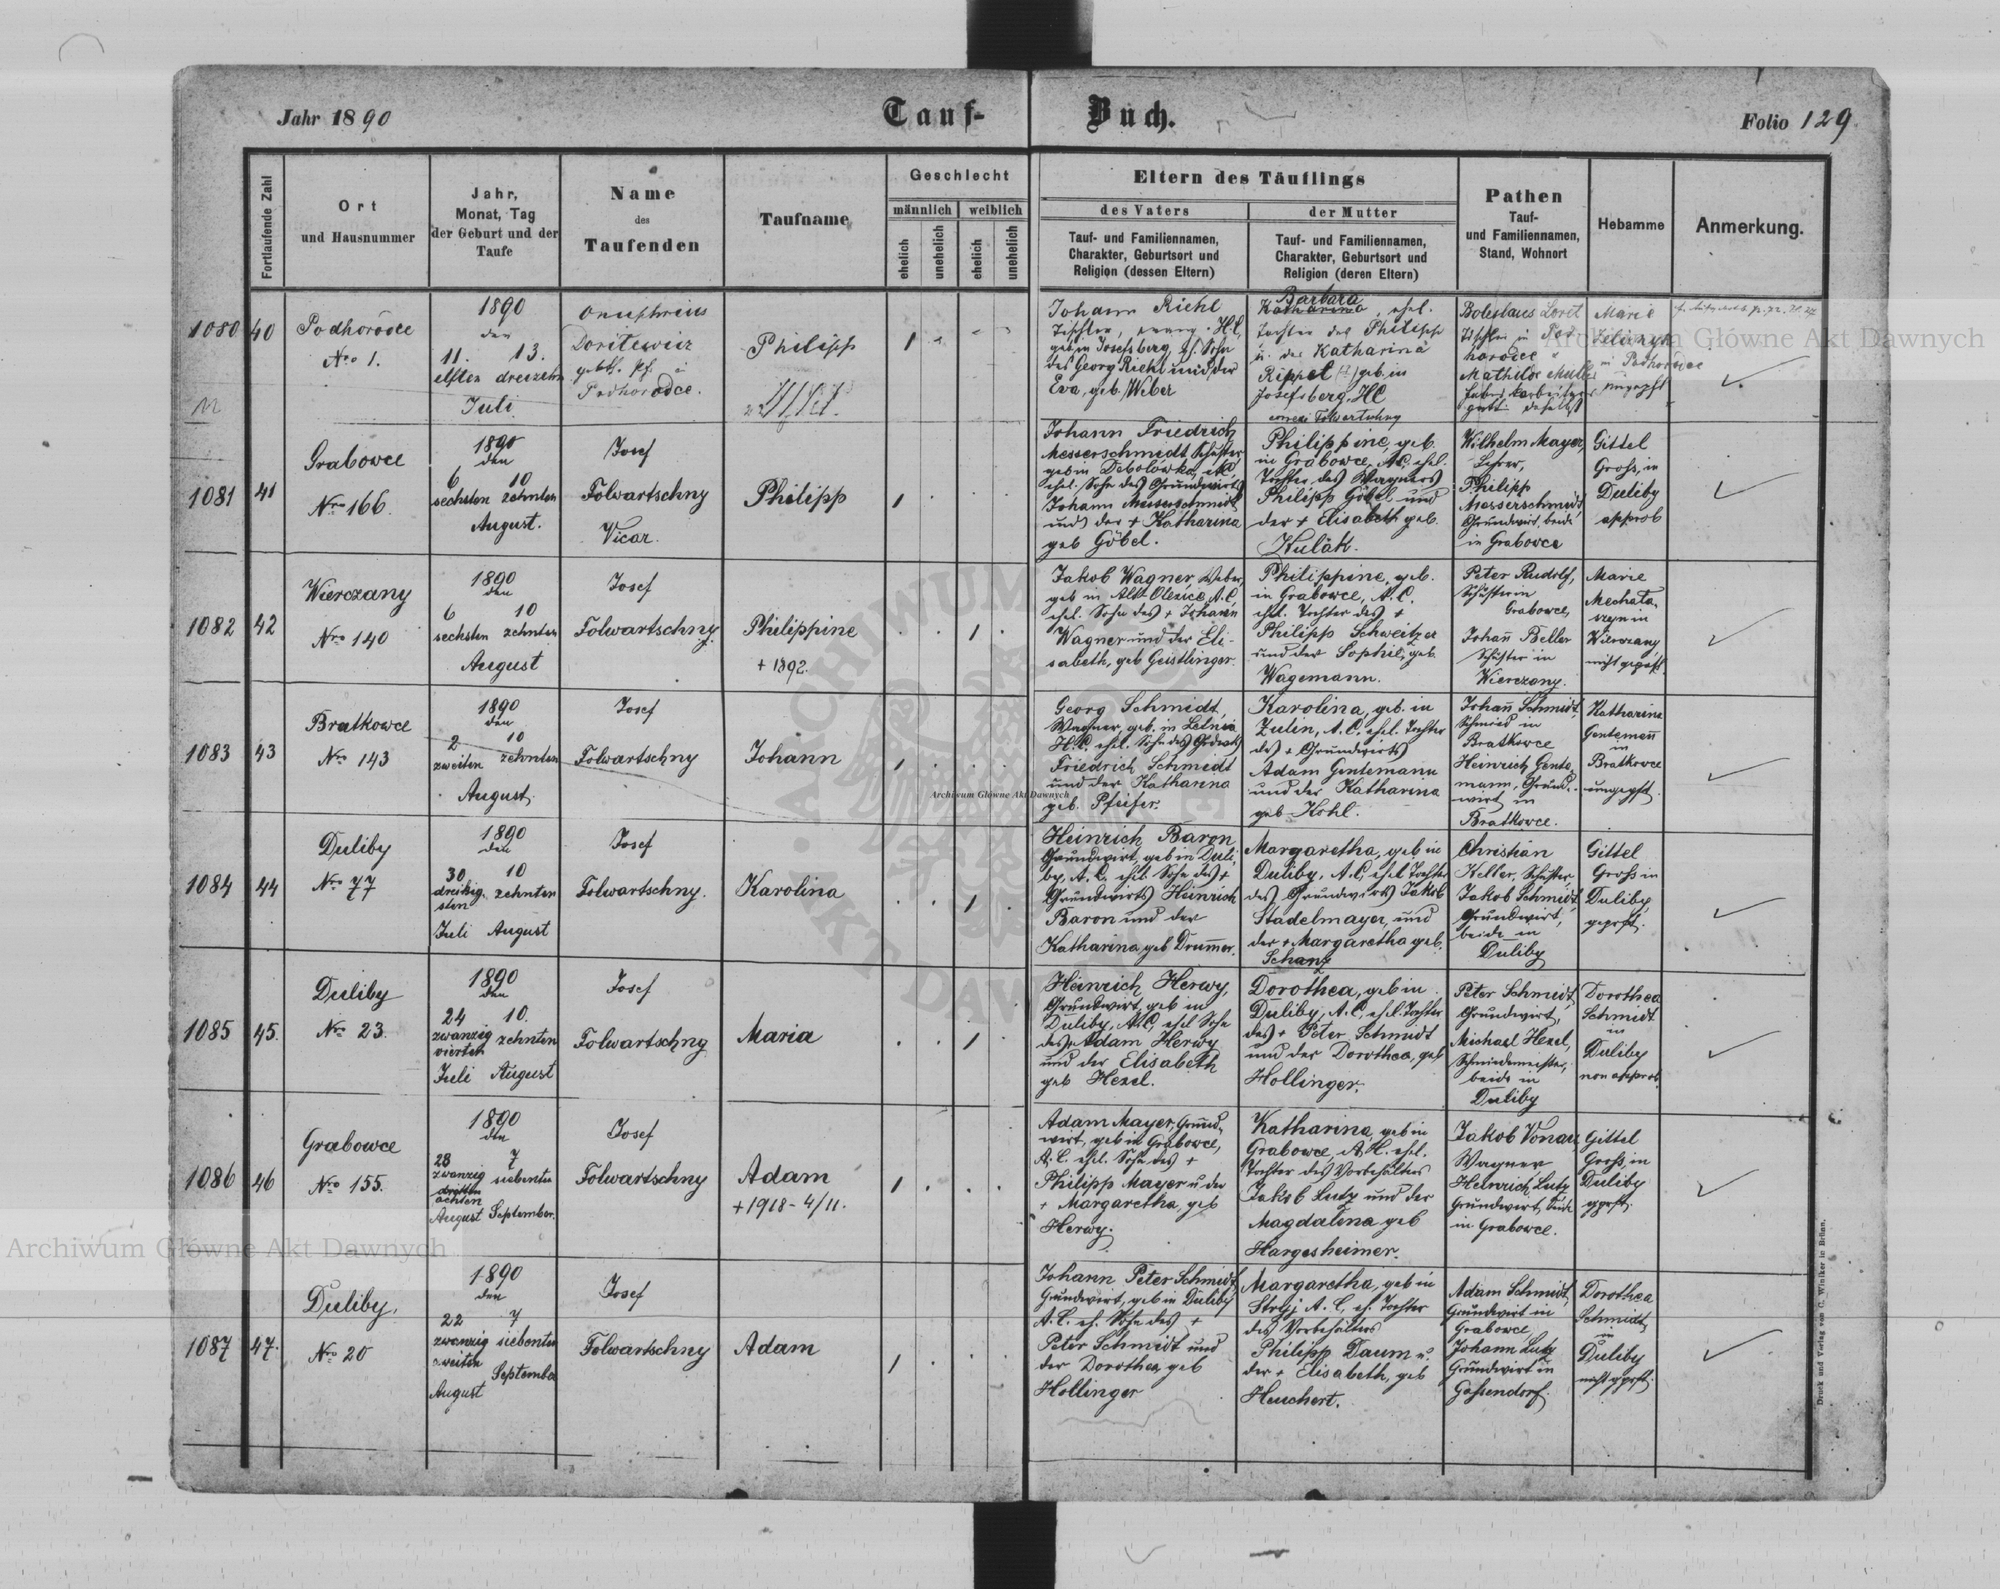 Jahr 1890
Tauf-
Buch.
Folio 129
Fortlaufende Zahl
Ort
und Hausnummer
Jahr,
Monat, Tag
der Geburt und der
Taufe
Name
des
Taufenden
Taufname
Geschlecht
männlich
weiblich
ehelich
unehelich
ehelich
unehelich
Eltern des Täuflings
des Vaters
der Mutter
Tauf- und Familiennamen,
Charakter, Geburtsort und
Religion (dessen Eltern)
Tauf- und Familiennamen,
Charakter, Geburtsort und
Religion (deren Eltern)
Pathen
Tauf-
und Familiennamen,
Stand, Wohnort
Hebamme
Anmerkung.
1080
40
Podhorodce
Nro 1.
1890
den
11. 13.
elften dreizehn
Juli
Onuphrius
Podhorodce.
Philipp
Johann Riehl
Tischler, evang. H.C.
geb. in Josefsberg, eh. Sohn
des Georg Riehl und der
Eva, geb. Weber
Barbara
Katharina, ehel.
Tochter des Philipp
u. der Katharina
Rippel geb. in
Josefsberg, HC
Boleslaus Loret
Tischler in Pod
horodce
Mathilde Muller
Marie
in Podhorodce
ungepft
1081
41
Grabowce
Nro 166.
1890
den
6 10
sechsten zehnten
August.
Josef
Folwartschny
Vicar.
Philipp
Johann Friedrich
Messerschmidt Schuster
geb in Debolowka, A.C.
ehel. Sohn des Grundwirts
Johann Messerschmidt
und der + Katharina
geb Göbel.
Philippine, geb.
in Grabowce, A.C. ehel.
Tochter des Wagners
Philipp Göbel und
der + Elisabeth geb.
Kulak.
Wilhelm Mayer,
Lehrer,
Philipp
Messerschmidt
Grundwirt, beide
in Grabowce
Gittel
Gross, in
Duliby
approb
1082
42
Wierczany
Nro 140
1890
den
6 10
sechsten zehnten
August
Josef
Folwartschny
Philippine
+ 1892.
Jakob Wagner, Weber,
geb in Altt Oleszice, A.C.
ehel. Sohn des + Johann
Wagner und der Eli-
sabeth, geb Geistlinger.
Philippine, geb.
in Grabowce, A.C.
ehel. Tochter des +
Philipp Schweitzer
und der Sophie, geb.
Wagemann.
Peter Rudolf,
Schuster in
Grabowce,
Johann Beller
Schuster in
Wierczany.
Marie
Wierczany
nicht gepft.
1083
43
Bratkowce
Nro 143
1890
den
2 10
zweiten zehnten
August.
Josef
Folwartschny
Johann
Georg Schmidt,
Wagner, geb. in
H.C, ehel. Sohn des
Friedrich Schmidt
und der Katharina
geb. Pfeifer.
Karolina, geb. in
Zulin, A.C. ehel. Tochter
des + Grundwirts
Adam Gentemann
und der Katharina
geb. Kohl.
Johann Schmidt,
Schmied in
Bratkowce
Heinrich Gente-
mann, Grund-
wirt in
Bratkowce.
Katharina
Gentemann
in
Bratkowce
ungepft.
1084
44
Duliby
Nro 77
1890
den
30 10
dreißig- zehnten
sten
Juli August
Josef
Folwartschny.
Karolina
Heinrich Baron
Grundwirt, geb in Duli-
by, A.C. ehel. Sohn des +
Grundwirts Heinrich
Baron und der
Katharina, geb Drummer.
Margaretha, geb in
Duliby, A.C, ehel Tochter
des Grundwirts Jakob
Stadelmayer, und
der + Margaretha geb.
Schanz
Christian
Kelter, Schuster
Jakob Schmidt,
Grundwirt,
beide in
Duliby
Gittel
Gross in
Duliby,
geprft.
1085
45.
Duliby
Nro 23.
1890
den
24 10.
zwanzig zehnten
vierten
Juli August
Josef
Folwartschny
Maria
Heinrich Herwy,
Grundwirt, geb in
Duliby, A.C, ehel Sohn
des Adam Herwy
und der Elisabeth
geb Hexel.
Dorothea, geb in
Duliby, A.C, ehel. Tochter
des + Peter Schmidt
und der Dorothea, geb
Hollinger.
Peter Schmidt,
Grundwirt,
Michael Hexel,
Schmiedemeister,
beide in
Duliby
Dorothea
Schmidt
in
Duliby
non approb.
1086
46
Grabowce
Nro 155.
1890
den
28 7
zwanzig siebenten
dritten
achten
August September.
Josef
Folwartschny
Adam
+ 1918 - 4/11.
Adam Mayer, Grund-
wirt, geb in Grabowce,
A.C. ehel. Sohn des +
Philipp Mayer u der
+ Margaretha, geb
Herwy.
Katharina, geb in
Grabowce, A.H. ehel.
Tochter des Vorbehälters
Jakob Lutz und der
Magdalena geb
Hargesheimer.
Jakob Vonau
Wagner
Heinrich Lutz
Grundwirt, beide
in Grabowce.
Gittel
Gross, in
Duliby
gprft.
1087
47.
Duliby.
Nro 20
1890
den
22 7
zwanzig siebenten
zweiten
September
August
Josef
Folwartschny
Adam
Johann Peter Schmidt,
Grundwirt, geb in Duliby
A.C. eh. Sohn des +
Peter Schmidt und
der Dorothea, geb
Hollinger
Margaretha, geb in
Stryj A.C, eh. Tochter
des Vorbehälters
Philipp Daum u.
der + Elisabeth, geb
Heuchert.
Adam Schmidt,
Grundwirt in
Grabowce
Johann Lutz
Grundwirt in
Gassendorf.
Dorothea
Schmidt,
in
Duliby
nicht gprft.
Druck und Verlag von C. Winiker in Brünn.
Archiwum Główne Akt Dawnych
Archiwum Główne Akt Dawnych
Archiwum Główne Akt Dawnych